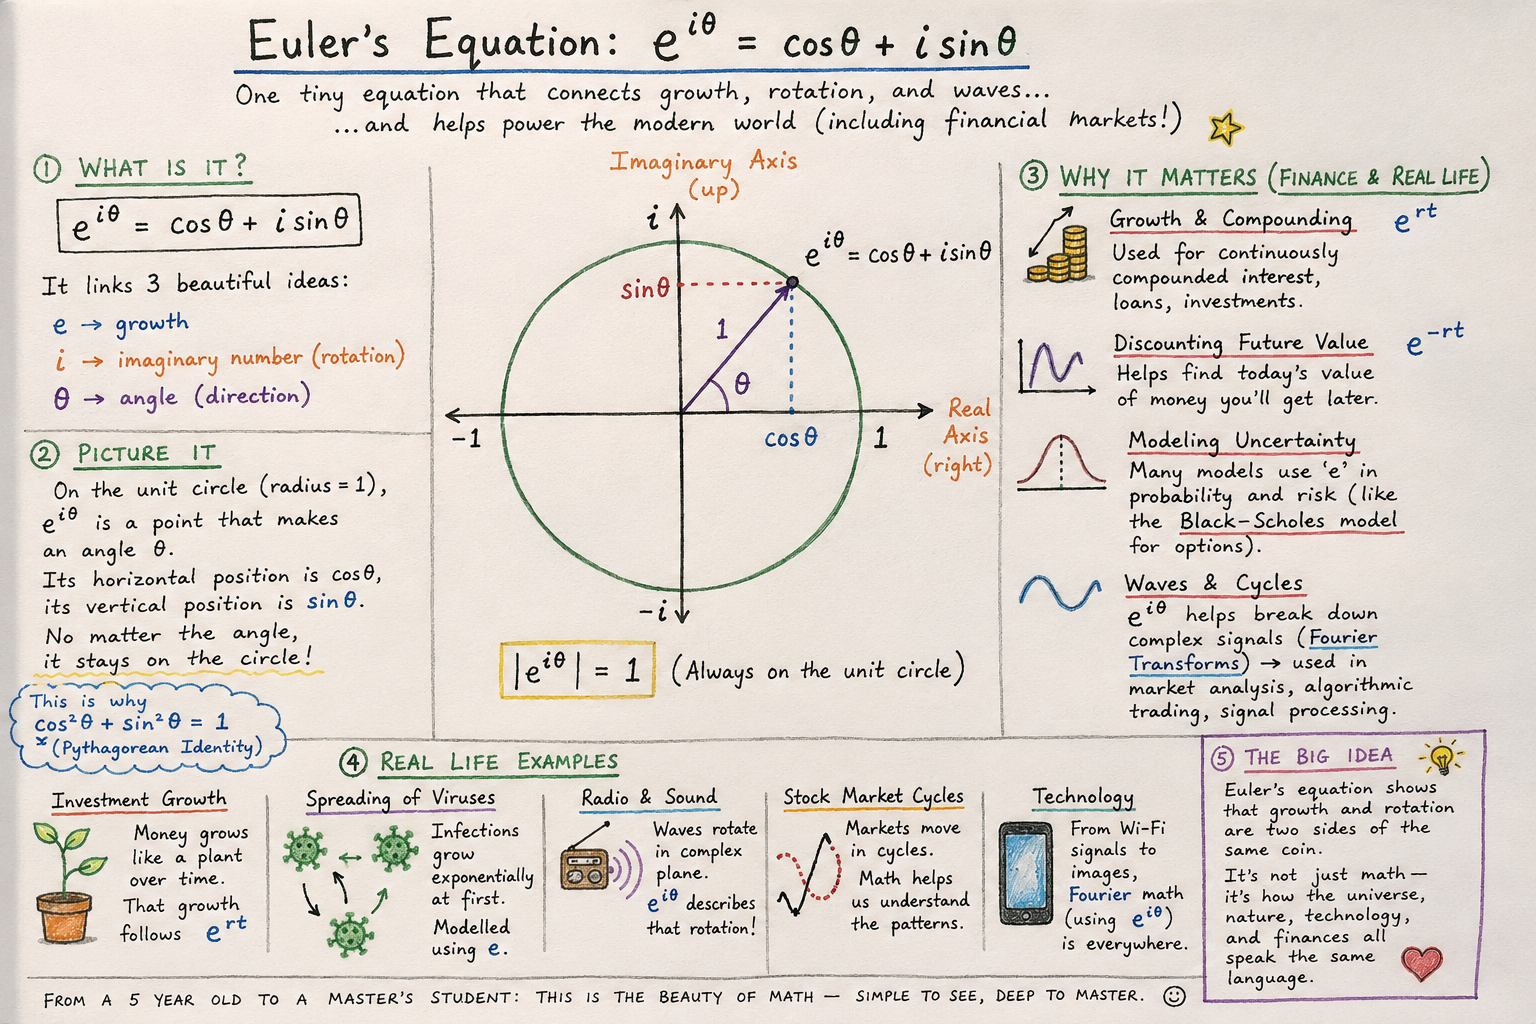 Euler's Equation: e^{iθ} = cosθ + i sinθ
One tiny equation that connects growth, rotation, and waves...
...and helps power the modern world (including financial markets!)
① WHAT IS IT?
e^{iθ} = cosθ + i sinθ
It links 3 beautiful ideas:
e → growth
i → imaginary number (rotation)
θ → angle (direction)
② PICTURE IT
On the unit circle (radius = 1),
e^{iθ} is a point that makes
an angle θ.
Its horizontal position is cosθ,
its vertical position is sinθ.
No matter the angle,
it stays on the circle!
This is why
cos²θ + sin²θ = 1
(Pythagorean Identity)
Imaginary Axis
(up)
i
e^{iθ} = cosθ + isinθ
sinθ
1
θ
-1
cosθ
1
Real
Axis
(right)
-i
|e^{iθ}| = 1 (Always on the unit circle)
③ WHY IT MATTERS (FINANCE & REAL LIFE)
Growth & Compounding e^{rt}
Used for continuously
compounded interest,
loans, investments.
Discounting Future Value e^{-rt}
Helps find today's value
of money you'll get later.
Modeling Uncertainty
Many models use 'e' in
probability and risk (like
the Black-Scholes model
for options).
Waves & Cycles
e^{iθ} helps break down
complex signals (Fourier
Transforms) → used in
market analysis, algorithmic
trading, signal processing.
④ REAL LIFE EXAMPLES
Investment Growth
Money grows
like a plant
over time.
That growth
follows e^{rt}
Spreading of Viruses
Infections
grow
exponentially
at first.
Modelled
using e.
Radio & Sound
Waves rotate
in complex
plane.
e^{iθ} describes
that rotation!
Stock Market Cycles
Markets move
in cycles.
Math helps
us understand
the patterns.
Technology
From Wi-Fi
signals to
images,
Fourier math
(using e^{iθ})
is everywhere.
⑤ THE BIG IDEA
Euler's equation shows
that growth and rotation
are two sides of the
same coin.
It's not just math—
it's how the universe,
nature, technology,
and finances all
speak the same
language.
FROM A 5 YEAR OLD TO A MASTER'S STUDENT: THIS IS THE BEAUTY OF MATH — SIMPLE TO SEE, DEEP TO MASTER. ☺